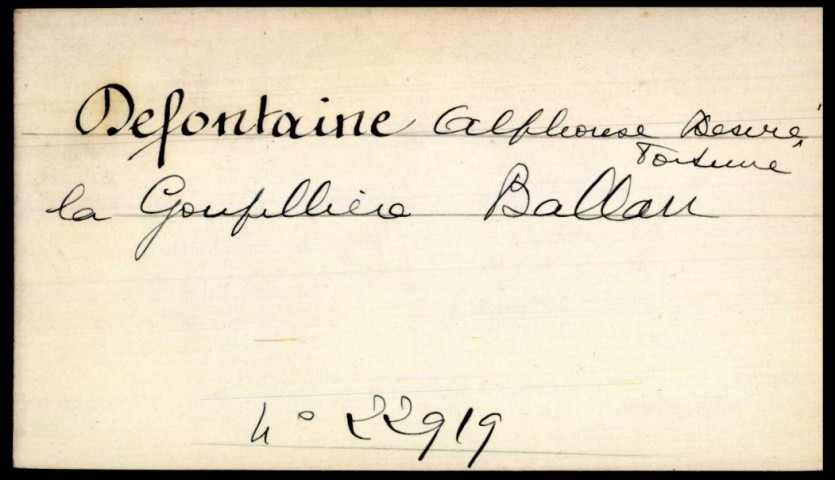 Defontaine Alphonse Desiré
Fortuné
la Goupillière Ballan
N° 22919